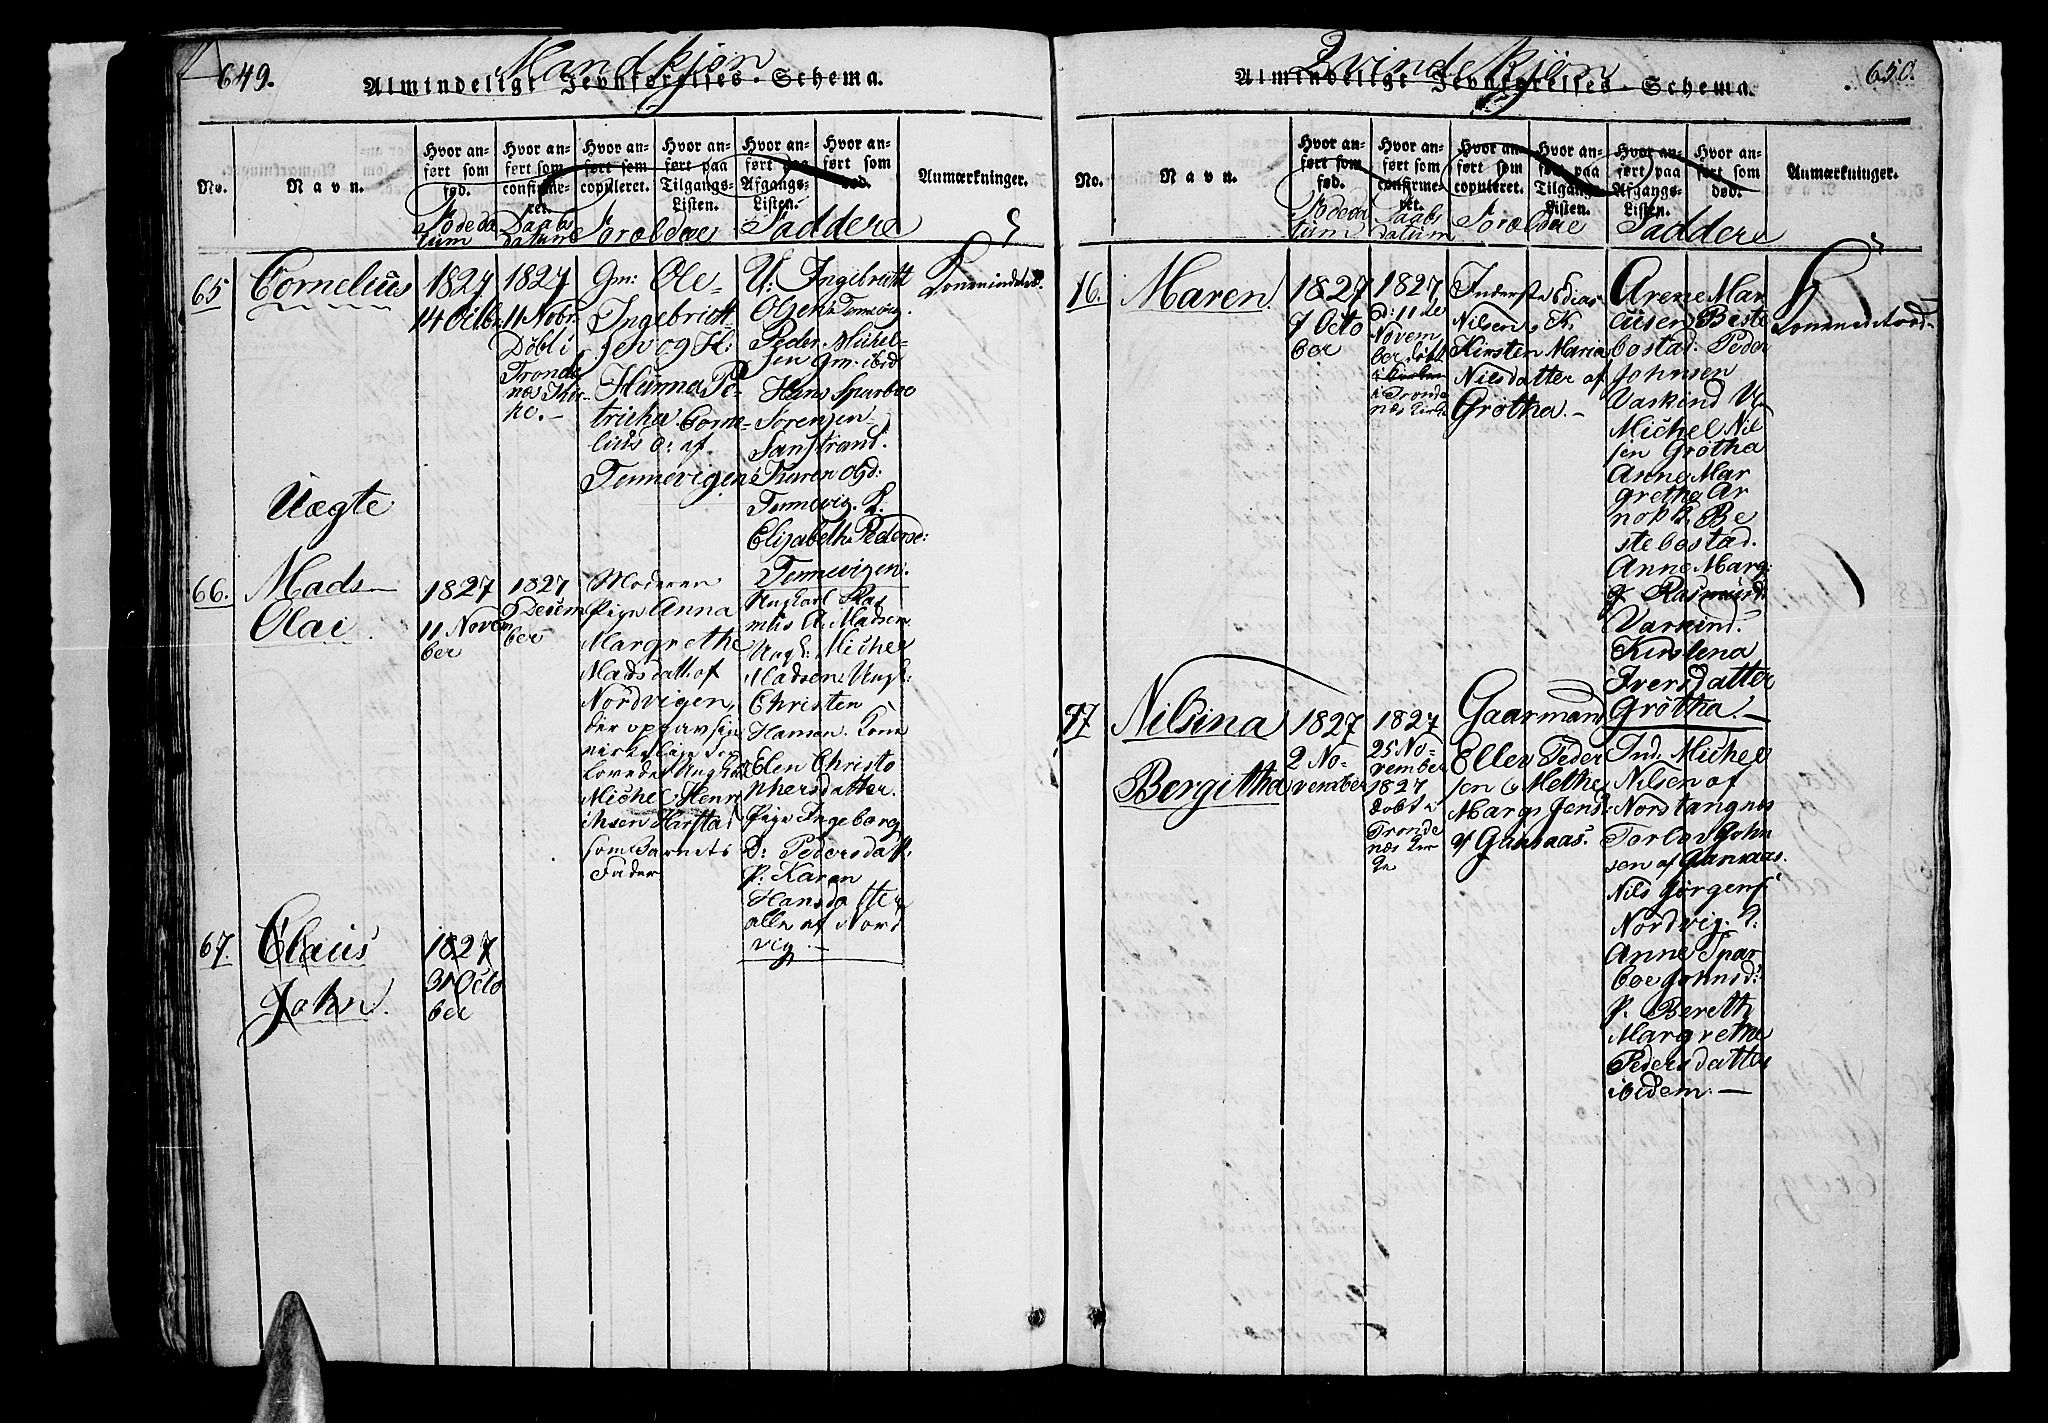 649.
Mandkjøn
Almindeligt Jevnførelses-Schema.
No.
Navn.
Hvor anført som fød.
Hvor anført som confirmeret.
Hvor anført som copuleret.
Hvor anført paa Tilgangs-Listen.
Hvor anført paa Afgangs-Listen.
Hvor anført som død.
Anmærkninger.
Fødeda
tum
Daabs
datum
Foroldre
Faddere
65
Cornelius
1827
14 Octbr
1827
11 Nobr
Døbt i
Tronde
næs Kir
ke.-
Gm: Ole
Ingebrigt
sen og H:
Hanna Pe
tricha Corne
lius D: af
Tennevigen
U: Ingebrigt
Olsen Tennevig.
Peder Michel-
sen Gm: ibid
Hans Sparboe
Sørensen
Sanstrand.
Karen Olsd:
Tennevig. K.
Elizabeth Peders:
Tennevigen.
Uægte
66.
Mads
Olai
1827
11 Novem
ber
1827
9 Decem
ber
Moderen
Pige Anna
Margrethe
Madsdatt. af
Nordvigen,
Michel Henri
chsen Harstad
som Barnets
Fader
Ungkarl Ras
mus A: Madsen
Ungk: Michel
Madsen Ungk:
Christen
Hansen. Kone
Elen Christo
phersdatter.
Pige Ingeborg
D: Pedersdatt:
P: Karen
Hansdatter
alle af Nord
vig.-
67.
Claus
John.
1827
31 Octo
ber
650.
Qvindekjøn
Almindeligt Jevnførelses-Schema.
No.
Navn.
Hvor anført som fød.
Hvor anført som confirmeret.
Hvor anført som copuleret.
Hvor anført paa Tilgangs-Listen.
Hvor anført paa Afgangs-Listen.
Hvor anført som død.
Anmærkninger.
Fødeda
tum
Daabs
datum
Foroldre
Faddere
76.
Maren
1827
7 Octo
ber
1827
D: 11 de
Novem
ber døbt
i Tronde
næs Kirke
Inderste Edias
Nilsen, K.
Kirsten Maria
Nilsdatter af
Grøtha.-
Arene Mar
cusen Beste
bostad. Peder
Johnsen
Varkind U:
Michel Nil
sen Grøtha
Anne Mar
grethe Ar
Be
stebostad.
Anne Marg:
Rasmusd:
Varkind.
Kirstena
Iversdatter
Grøtha.-
77
Nilsina
Bergitha
1827
2 No-
vember
1827
25 No-
vember
1827
døbt i
Tronde
næs Kir
ke
Gaarmand
Ellev Peder
sen og Methe
Marg: Jensd:
af Gansaas.
Ind. Michel
Nilsen af
Nordtangnes
Torlov John
sen af Gansaas.
Nils Jørgens:
Nordvig.
Anne Spar
boe Johnsd:
P. Bereth
Margrethe
Pedersdatter
ibidem.-